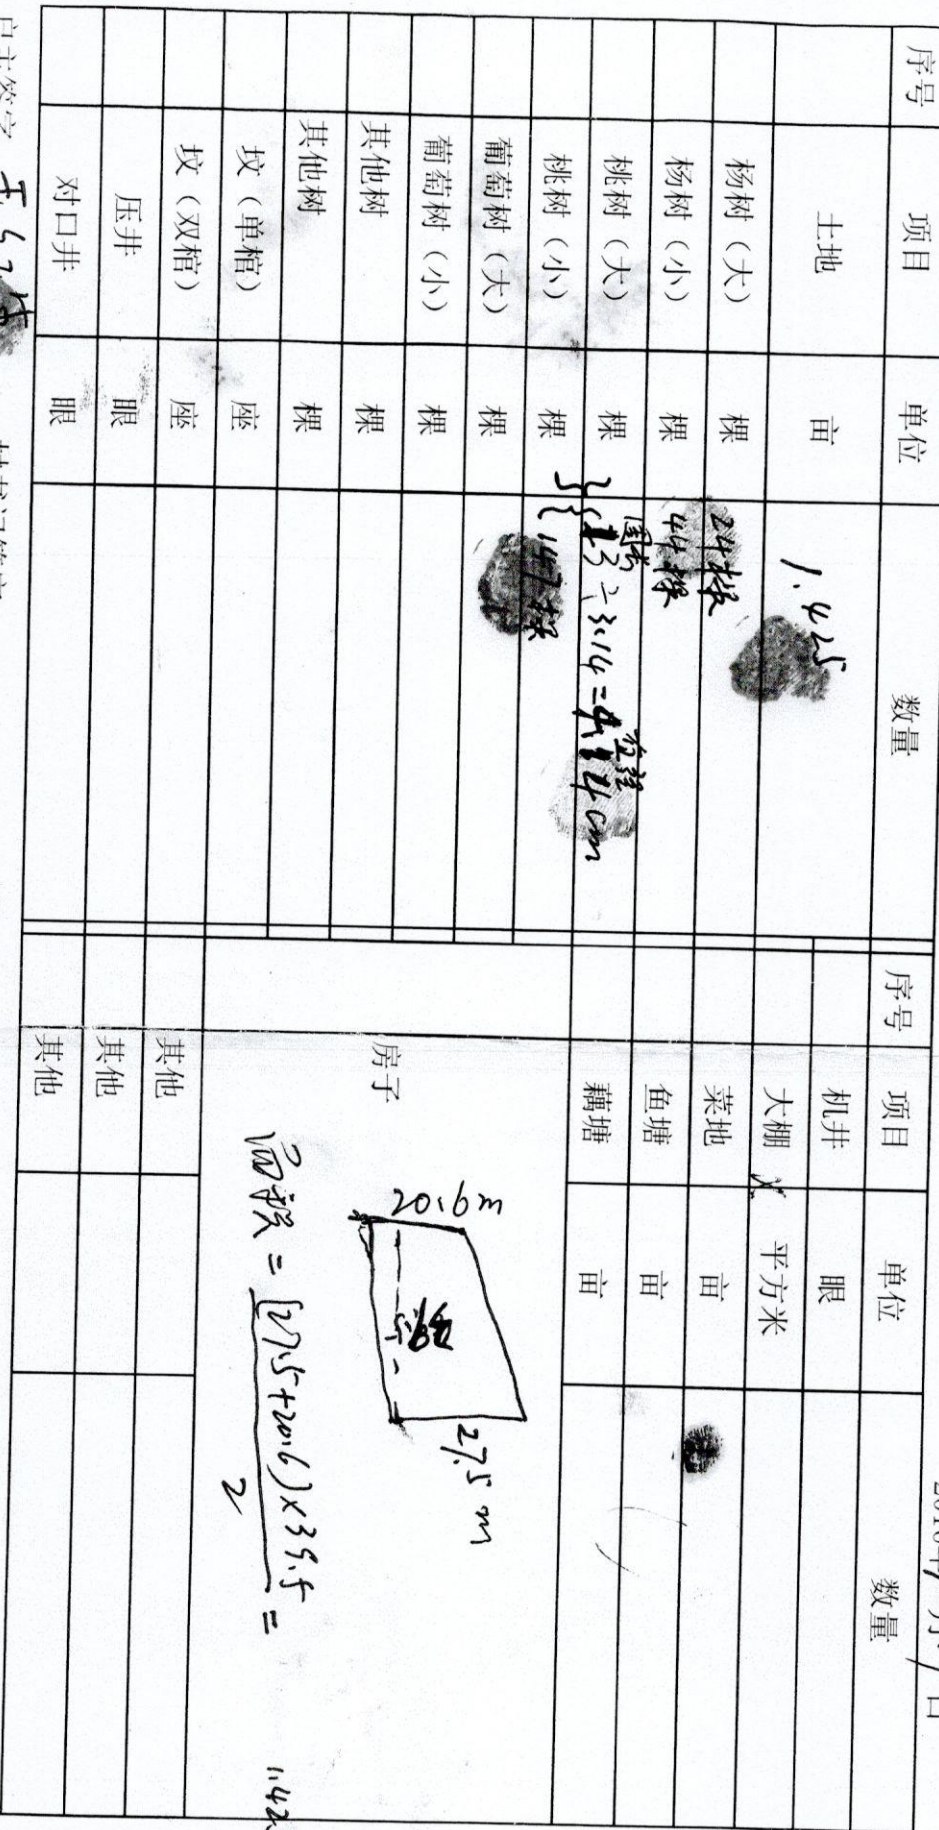 序号 项目 单位 数量 序号 项目 单位 数量
土地 亩 1.425 机井 眼
杨树（大） 棵 24棵 大棚 平方米
杨树（小） 棵 44棵 菜地 亩
桃树（大） 棵 13÷3.14=4cm 鱼塘 亩
桃树（小） 棵 147棵 藕塘 亩
葡萄树（大） 棵
葡萄树（小） 棵
其他树 棵
其他树 棵
坟（单棺） 座
坟（双棺） 座
压井 眼
对口井 眼
房子
20.6m
27.5m
面积=(27.5+20.6)×39.5
2
=
1.42
其他
其他
其他
户主签字